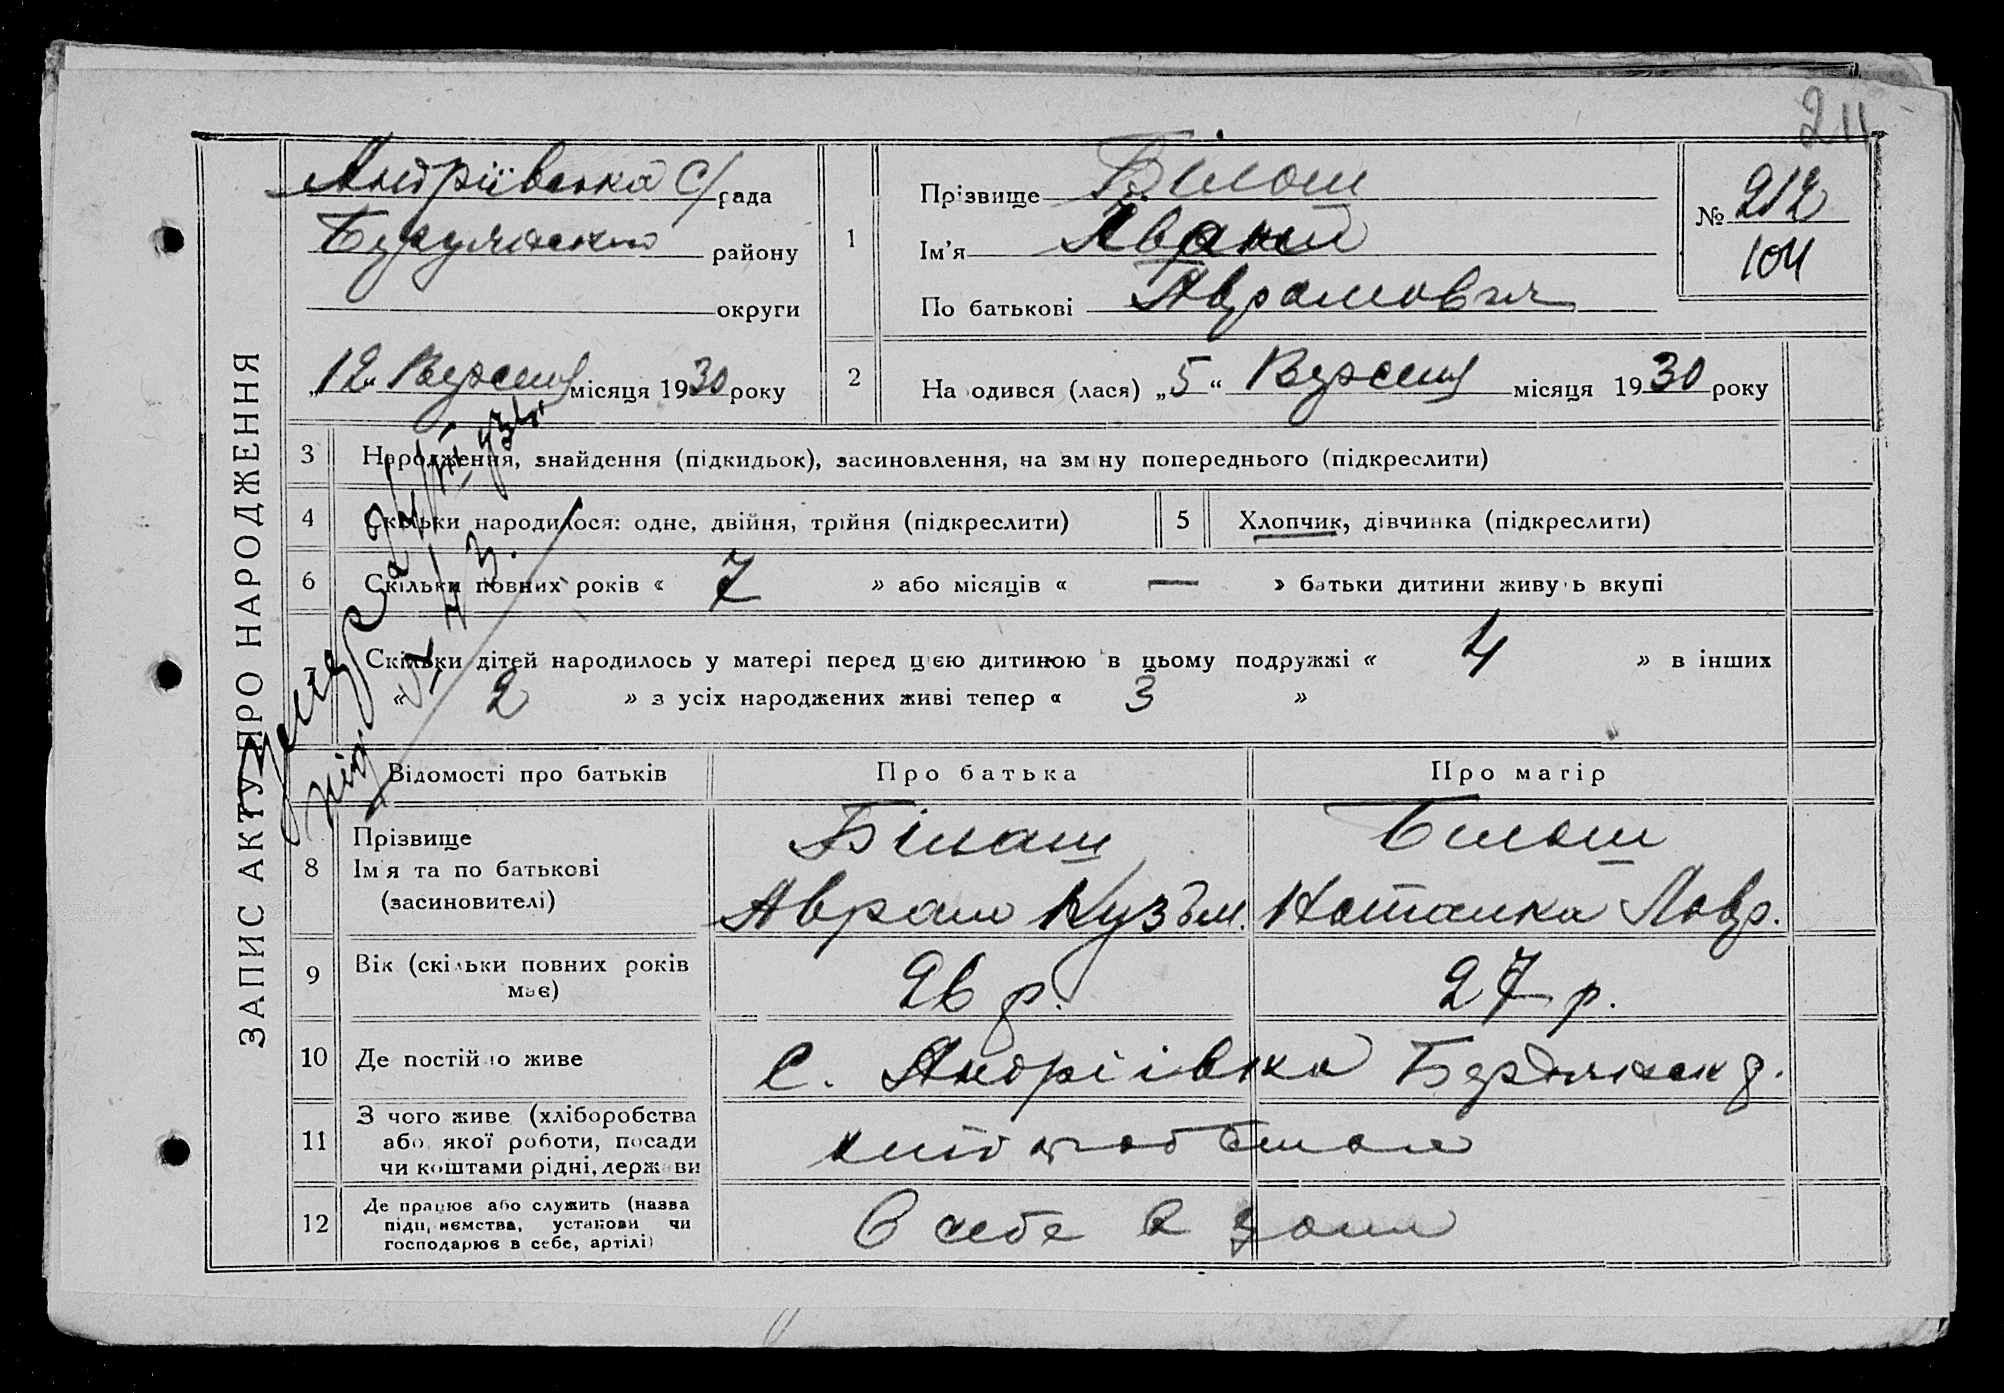 211
ЗАПИС АКТУ ПРО НАРОДЖЕННЯ
Андріївська с/рада
Бердянського району
округи
„12“ Вересня місяця 1930 року
1
Прізвище Білаш
Ім'я
По батькові Аврамович
№ 212
104
2
Народився (лася) „5“ Вересня місяця 1930 року
3 Народження, знайдення (підкидьок), засиновлення, на зміну попереднього (підкреслити)
4 Скільки народилося: одне, двійня, трійня (підкреслити)
5 Хлопчик, дівчинка (підкреслити)
6 Скільки повних років « 7 » або місяців « — » батьки дитини живуть вкупі
7 Скільки дітей народилось у матері перед цією дитиною в цьому подружжі « 4 » в інших
« 2 » з усіх народжених живі тепер « 3 »
Відомості про батьків Про батька Про матір
8 Прізвище Ім'я та по батькові (засновителі)
Білаш Білаш
Аврам Кузьм. Наталка Лавр.
9 Вік (скільки повних років має) 26 р. 27 р.
10 Де постійно живе с. Андріївка Бердянськ р.
11 З чого живе (хліборобства
або якої роботи, посади
чи коштами рідні, держави
12 Де працює або служить (назва
підприємства, установи чи
господарює в себе, артілі)
в себе в